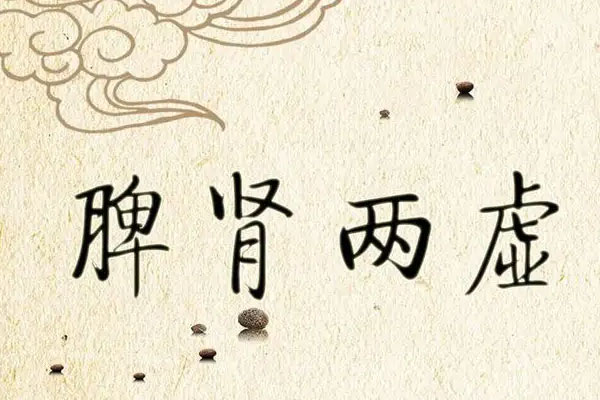 脾肾两虚